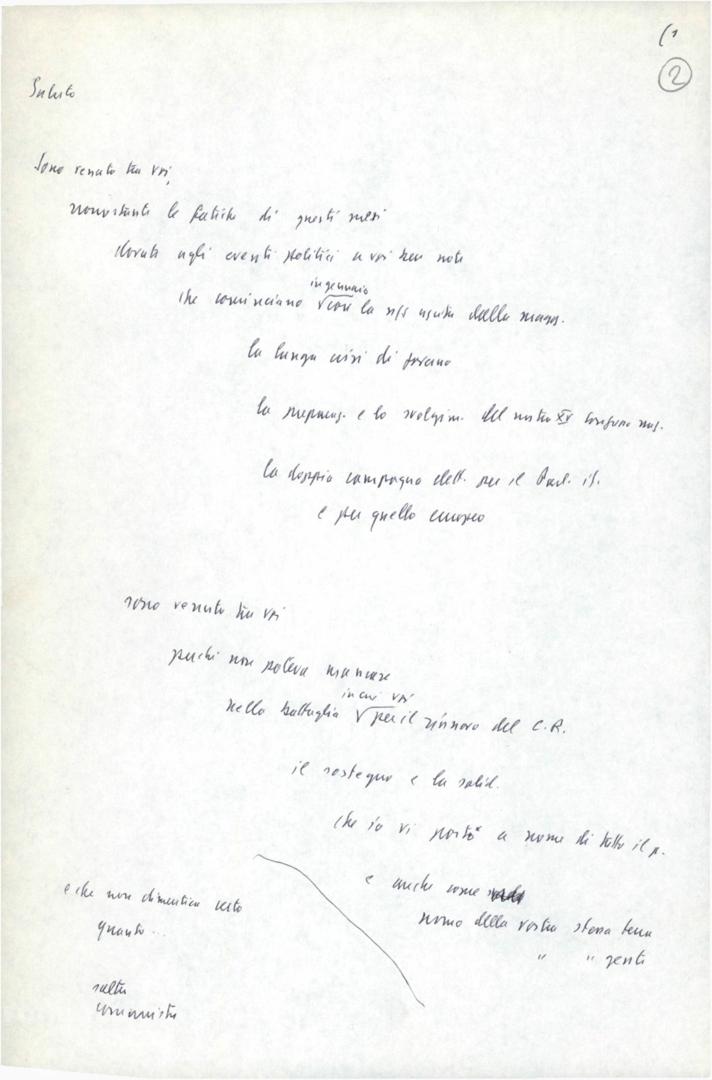 (1
2
Saluto
Sono venuto tra voi,
nonostante le fatiche di questi mesi
dovute agli eventi politici a voi ben noti
in gennaio
che cominciano √con la ns uscita dalla magg.
la lunga crisi di governo
la preparaz. e lo svolgim. del nostro XV congresso naz.
la doppia campagna elett. per il Parl. it.
e per quello europeo
sono venuto tra voi
perché non poteva mancare
in cui voi
nella battaglia √ per il rinnovo del C.R.
il sostegno e la solid.
che io vi porto a nome di tutto il p.
e anche come
uomo della vostra stessa terra
" " gente
e che non dimentica certo
quanto...
comunista